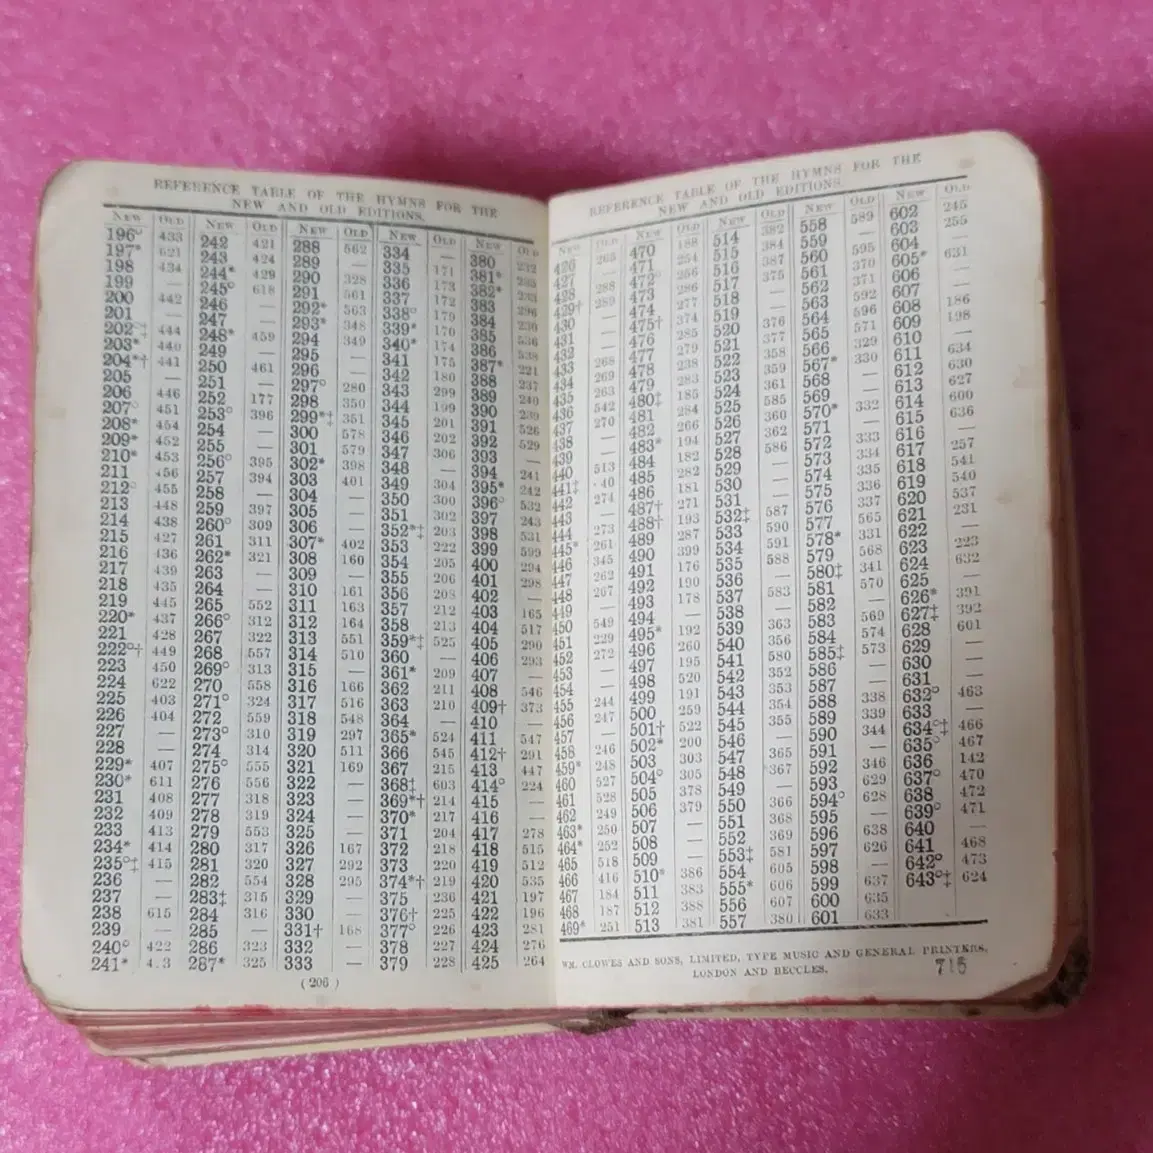 REFERENCE TABLE OF THE HYMNS FOR THE
NEW AND OLD EDITIONS.
NEW OLD NEW OLD NEW OLD NEW OLD NEW OLD
196° 433 242 421 288 562 334 — 380 232
197* 621 243 424 289 — 335 171 381* 235
198 434 244* 429 290 328 336 173 382* 233
199 — 245° 618 291 561 337 172 383 296
200 442 246 — 292* 563 338° 179 384 230
201 — 247 — 293* 348 339* 170 385 536
202°‡ 444 248* 459 294 349 340* — 386 538
203* 440 249 — 295 — 341 175 387* 221
204*† 441 250 461 296 — 342 180 388 237
205 — 251 — 297° 280 343 299 389 240
206 446 252 177 298 350 344 199 390 239
207° 451 253° 396 299*‡ 351 345 201 391 526
208* 454 254 — 300 578 346 202 392 529
209* 452 255 — 301 579 347 306 393 —
210* 453 256° 395 302* 398 348 — 394 241
211 456 257 394 303 401 349 304 395* 242
212° 455 258 — 304 — 350 300 396° 532
213 448 259 397 305 — 351 302 397 243
214 438 260° 309 306 — 352*‡ 203 398 531
215 427 261 311 307* 402 353 222 399 599
216 436 262* 321 308 160 354 205 400 294
217 439 263 — 309 — 355 206 401 298
218 435 264 — 310 161 356 208 402 —
219 445 265 552 311 163 357 212 403 165
220* 437 266° 312 312 164 358 213 404 517
221 428 267 322 313 551 359*‡ 525 405 290
222°† 449 268 557 314 510 360 — 406 293
223 450 269° 313 315 — 361* 209 407 —
224 622 270 558 316 166 362 211 408 546
225 403 271° 324 317 516 363 210 409† 373
226 404 272 559 318 548 364 — 410 —
227 — 273° 310 319 297 365* 524 411 547
228 — 274 314 320 511 366 545 412† 291
229* 407 275° 555 321 169 367 215 413 447
230* 611 276 556 322 — 368‡ 603 414° 224
231 408 277 318 323 — 369*† 214 415 —
232 409 278 319 324 — 370* 217 416 —
233 413 279 553 325 — 371 204 417 278
234* 414 280 317 326 167 372 218 418 515
235°‡ 415 281 320 327 292 373 220 419 512
236 — 282 554 328 295 374*† 219 420 535
237 — 283‡ 315 329 — 375 236 421 197
238 615 284 316 330 — 376† 225 422 196
239 — 285 — 331† 168 377° 226 423 281
240° 422 286 323 332 — 378 227 424 276
241* 4.3 287* 325 333 — 379 228 425 264
( 206 )
REFERENCE TABLE OF THE HYMNS FOR THE
NEW AND OLD EDITIONS.
NEW OLD NEW OLD NEW OLD NEW OLD NEW OLD
426 265 470 188 514 382 558 589 602 245
427 — 471 254 515 384 559 — 603 255
428 288 472° 256 516 387 560 595 604 —
429† 289 473 286 517 375 561 370 605* 631
430 — 474 277 518 — 562 371 606 —
431 — 475† 374 519 — 563 592 607 —
432 — 476 285 520 376 564 596 608 186
433 268 477 279 521 377 565 571 609 198
434 269 478 238 522 358 566 329 610 —
435 263 479 283 523 359 567* 330 611 634
436 542 480‡ 185 524 361 568 — 612 630
437 270 481 284 525 585 569 — 613 627
438 — 482 266 526 360 570* 332 614 600
439 — 483* 194 527 362 571 — 615 636
440 513 484 182 528 586 572 333 616 —
441‡ 40 485 282 529 — 573 334 617 257
442 274 486 181 530 — 574 335 618 541
443 — 487† 271 531 — 575 336 619 540
444 273 488† 193 532‡ 587 576 337 620 537
445* 261 489 287 533 590 577 565 621 231
446 345 490 399 534 591 578* 331 622 —
447 262 491 176 535 588 579 568 623 223
448 267 492 190 536 — 580‡ 341 624 632
449 — 493 178 537 583 581 570 625 —
450 549 494 — 538 — 582 — 626* 391
451 229 495* 192 539 363 583 569 627‡ 392
452 272 496 260 540 356 584 574 628 601
453 — 497 195 541 580 585‡ 573 629 —
454 — 498 520 542 352 586 — 630 —
455 244 499 191 543 353 587 — 631 —
456 247 500 259 544 354 588 338 632° 463
457 — 501† 522 545 355 589 339 633 —
458 246 502* 200 546 — 590 344 634°‡ 466
459* 248 503 303 547 365 591 — 635° 467
460 527 504° 305 548 367 592 346 636 142
461 528 505 378 549 — 593 629 637° 470
462 249 506 379 550 366 594° 628 638 472
463* 250 507 — 551 368 595 — 639° 471
464* 252 508 — 552 369 596 638 640 —
465 518 509 — 553‡ 581 597 626 641 468
466 416 510* 386 554 605 598 — 642° 473
467 184 511 383 555* 606 599 637 643°‡ 624
468 187 512 388 556 607 600 635
469* 251 513 381 557 380 601 633
WM. CLOWES AND SONS, LIMITED, TYPE MUSIC AND GENERAL PRINTERS,
LONDON AND BECCLES.
715